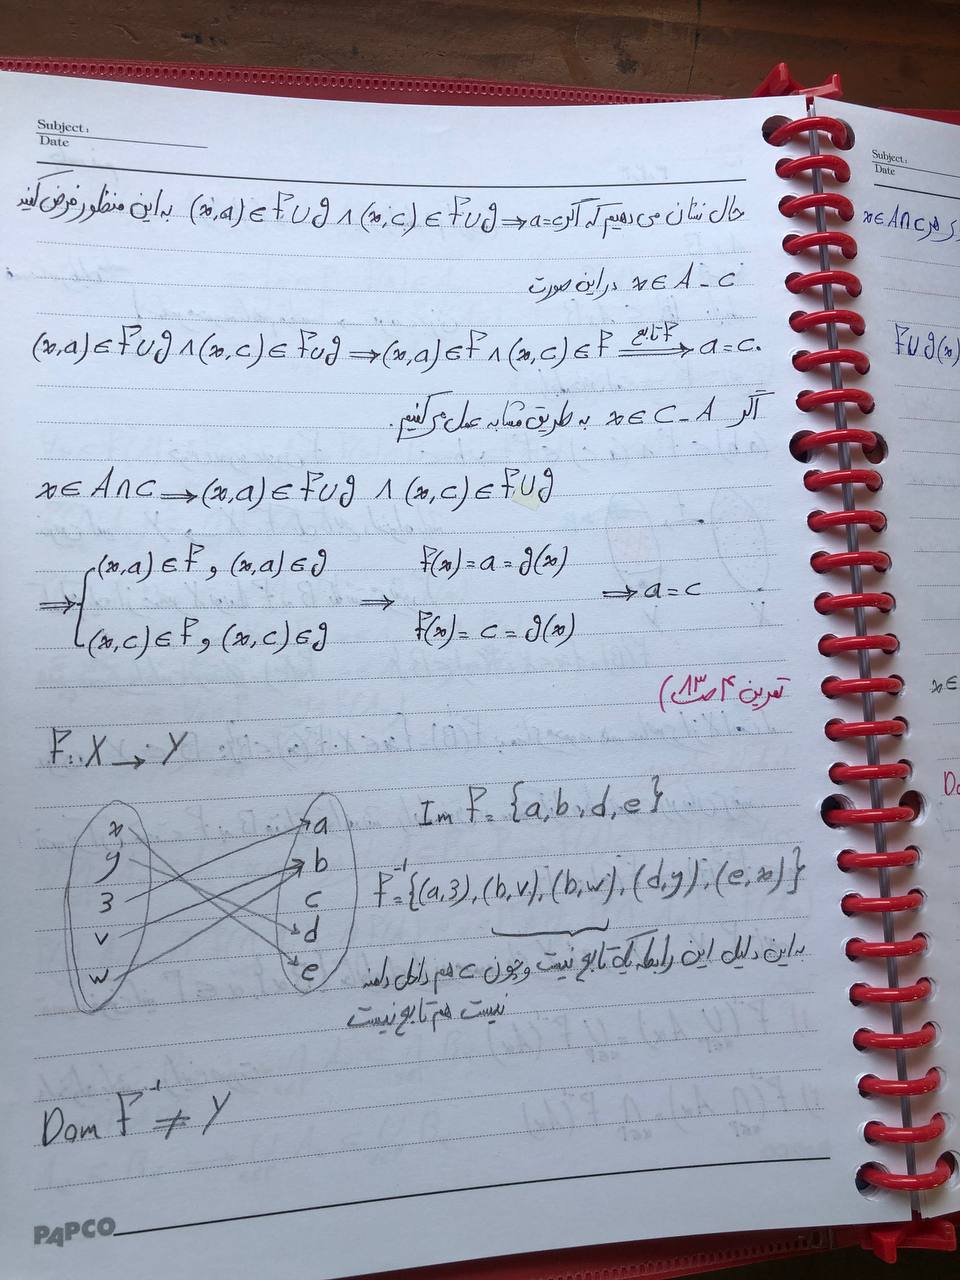 Subject:
Date
حال نشان می دهیم که اگر (x,a) ∈ f∪g ∧ (x,c) ∈ f∪g ⇒ a=c به این منظور فرض کنید
x ∈ A - C در این صورت
(x,a) ∈ f∪g ∧ (x,c) ∈ f∪g ⇒ (x,a) ∈ f ∧ (x,c) ∈ f ⇒ (f تابع) a=c.
اگر x ∈ C - A به طریق مشابه عمل می کنیم.
x ∈ A∩C ⇒ (x,a) ∈ f∪g ∧ (x,c) ∈ f∪g
⇒ { (x,a) ∈ f , (x,a) ∈ g   f(x) = a = g(x)
(x,c) ∈ f , (x,c) ∈ g ⇒ f(x) = c = g(x) ⇒ a = c
تمرین ۴ ص ۱۳)
f: X → Y
Im f = {a,b,d,e}
x a
y b
3 c
v d
w e
f⁻¹ = {(a,3),(b,v),(b,w),(d,y),(e,x)}
به این دلیل این رابطه یک تابع نیست و چون c هم داخل دامنه
نیست هم تابع نیست
Dom f⁻¹ ≠ Y
PAPCO
Subject:
Date
x∈A∩C
f∪g(x)
x∈
Do